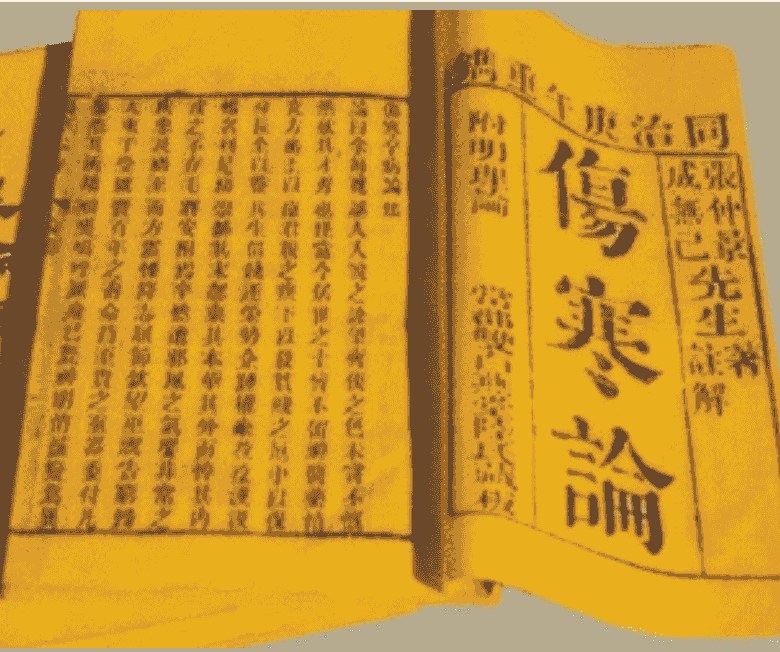 同治庚午重鐫
張仲景先生著
成無己先生註解
傷寒論
附明理論
傷寒卒病論集
論曰余每覽越人入虢之診望齊侯之色未嘗不慨
然歎其才秀也怪當今居世之士曾不留神醫藥精
究方術上以療君親之疾下以救貧賤之厄中以保
身長全以養其生但競逐榮勢企踵權豪孜孜汲汲
惟名利是務崇飾其末忽棄其本華其外而悴其內
皮之不存毛將安附焉卒然遭邪風之氣嬰非常之
疾患及禍至而方震慄降志屈節欽望巫祝告窮歸
天束手受敗賫百年之壽命持至貴之重器委付凡
醫恣其所措咄嗟嗚呼厥身已斃神明消滅變為異